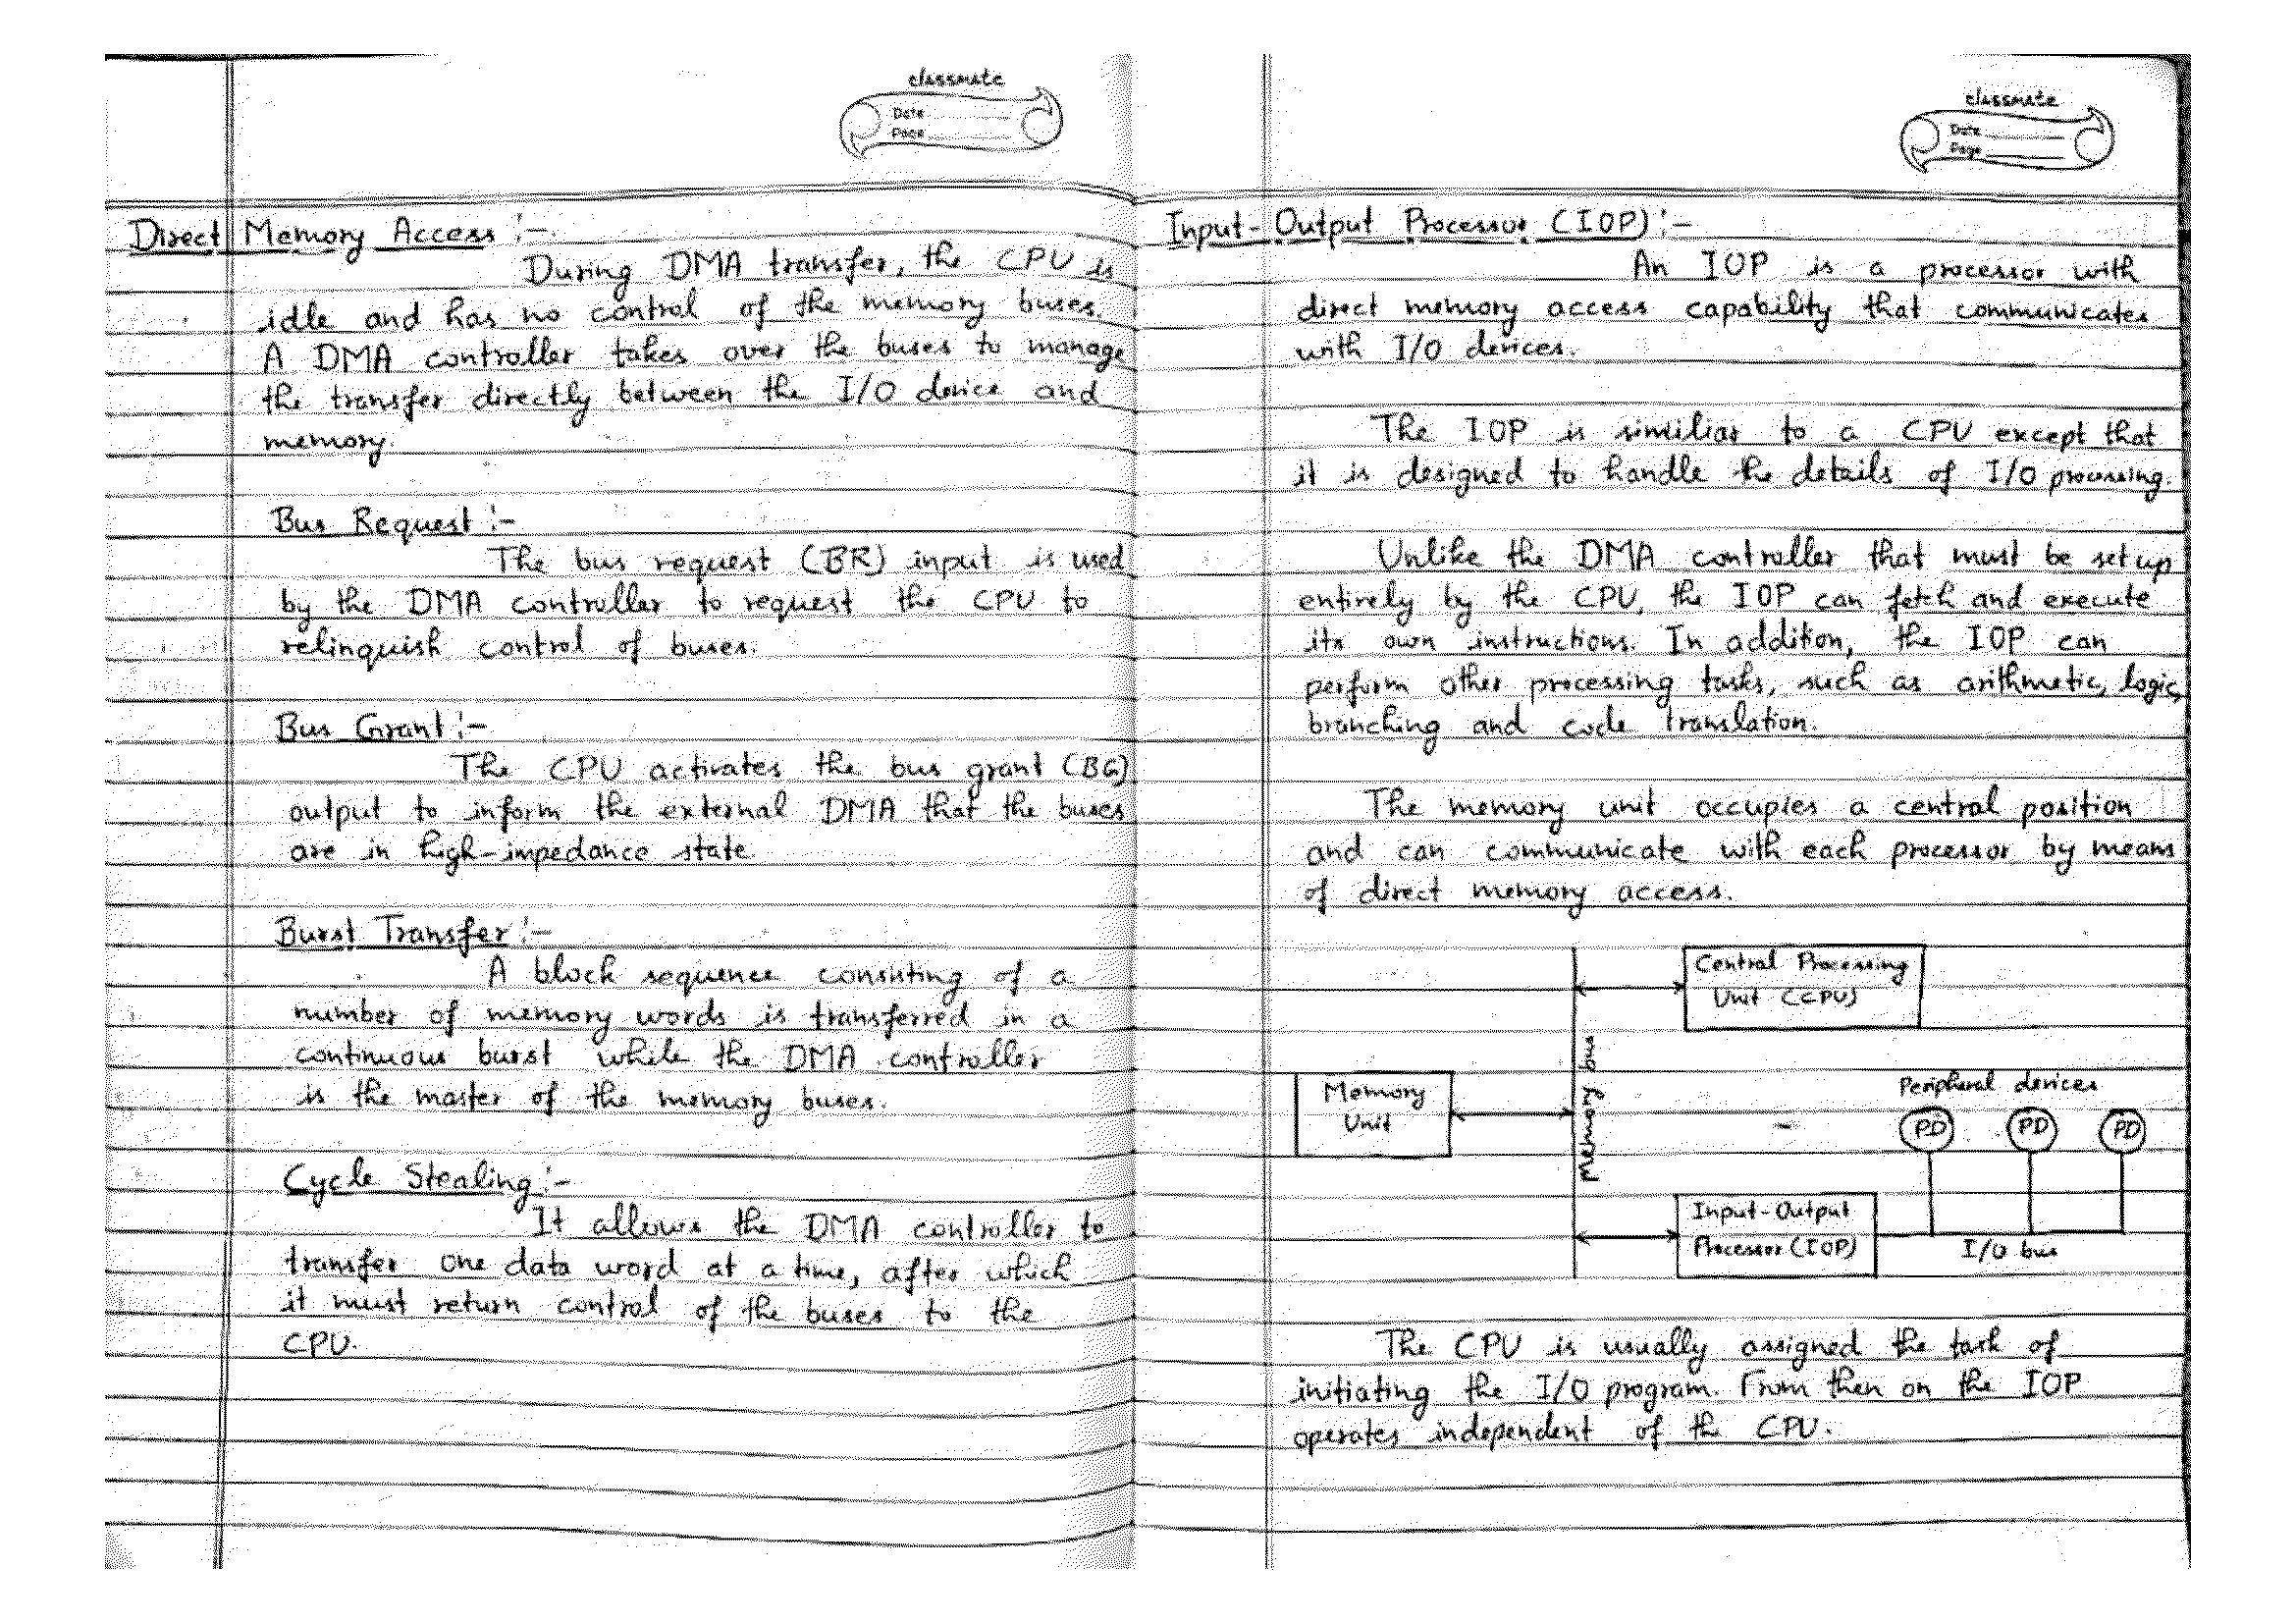 classmate
Date
Page
Direct Memory Access :-
During DMA transfer, the CPU is
idle and has no control of the memory buses.
A DMA controller takes over the buses to manage
the transfer directly between the I/O device and
memory.
Bus Request :-
The bus request (BR) input is used
by the DMA controller to request the CPU to
relinquish control of buses.
Bus Grant :-
The CPU activates the bus grant (BG)
output to inform the external DMA that the buses
are in high-impedance state.
Burst Transfer :-
A block sequence consisting of a
number of memory words is transferred in a
continuous burst while the DMA controller
is the master of the memory buses.
Cycle Stealing :-
It allows the DMA controller to
transfer one data word at a time, after which
it must return control of the buses to the
CPU.
classmate
Date
Page
Input-Output Processor (IOP) :-
An IOP is a processor with
direct memory access capability that communicates
with I/O devices.
The IOP is similiar to a CPU except that
it is designed to handle the details of I/O processing.
Unlike the DMA controller that must be set up
entirely by the CPU, the IOP can fetch and execute
its own instructions. In addition, the IOP can
perform other processing tasks, such as arithmetic, logic,
branching and code translation.
The memory unit occupies a central position
and can communicate with each processor by means
of direct memory access.
Central Processing
Unit (CPU)
Memory bus
Memory
Unit
Peripheral devices
PD PD PD
Input-Output
Processor (IOP)
I/O bus
The CPU is usually assigned the task of
initiating the I/O program. From then on the IOP
operates independent of the CPU.